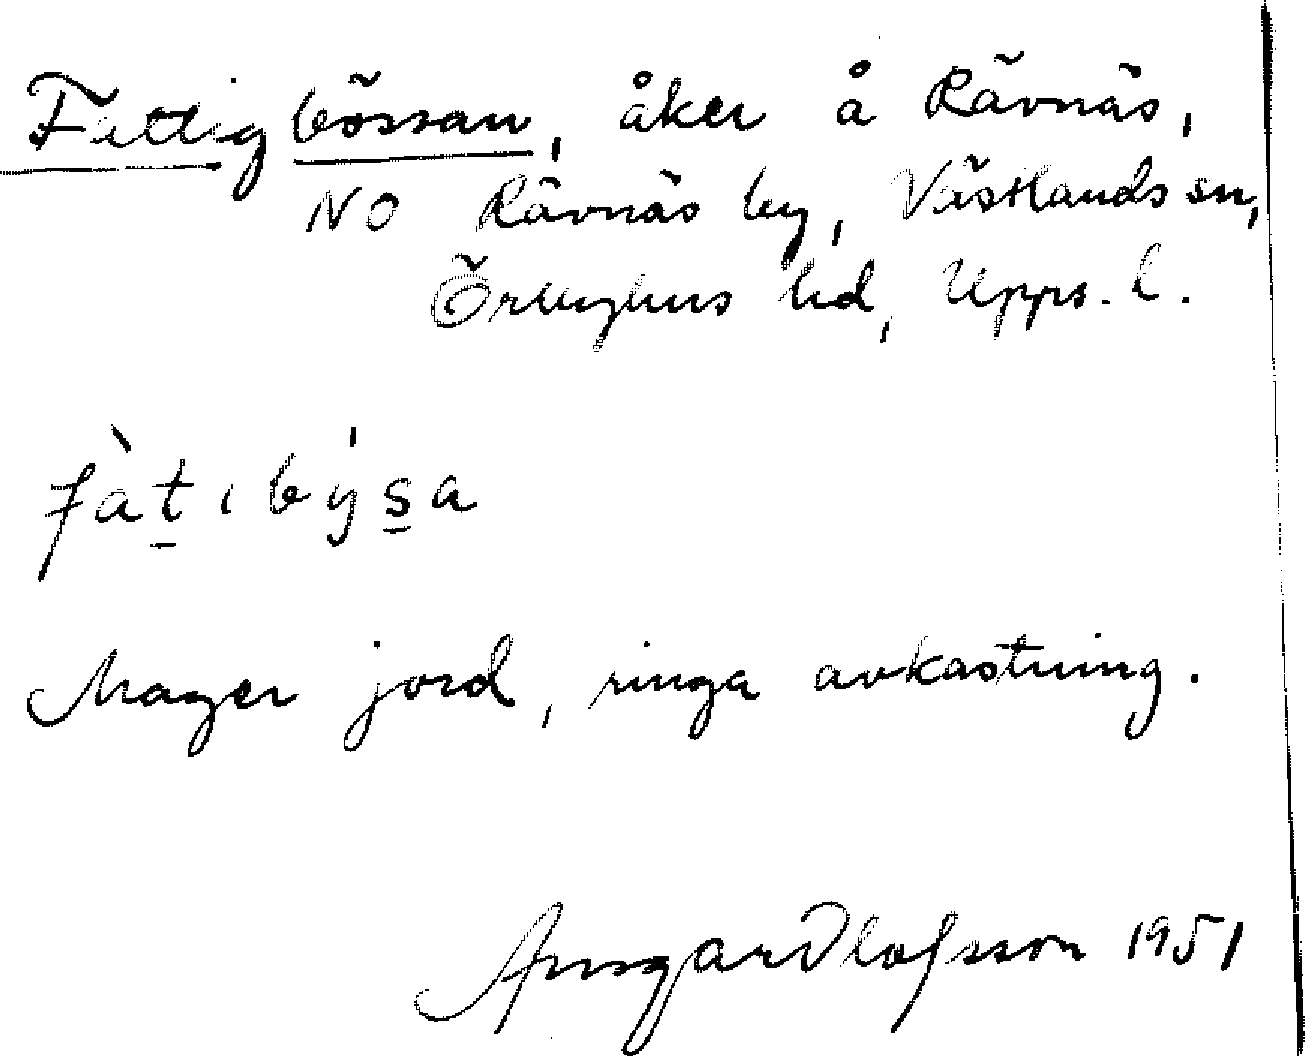 Fattigbössan, åker å Rävnäs,
NO Rävnäs by, Västlands sn,
Örbyhus hd, Upps. l.
fàt̲ıbýs̲a
Mager jord, ringa avkastning.
Ansgar Olofsson 1951